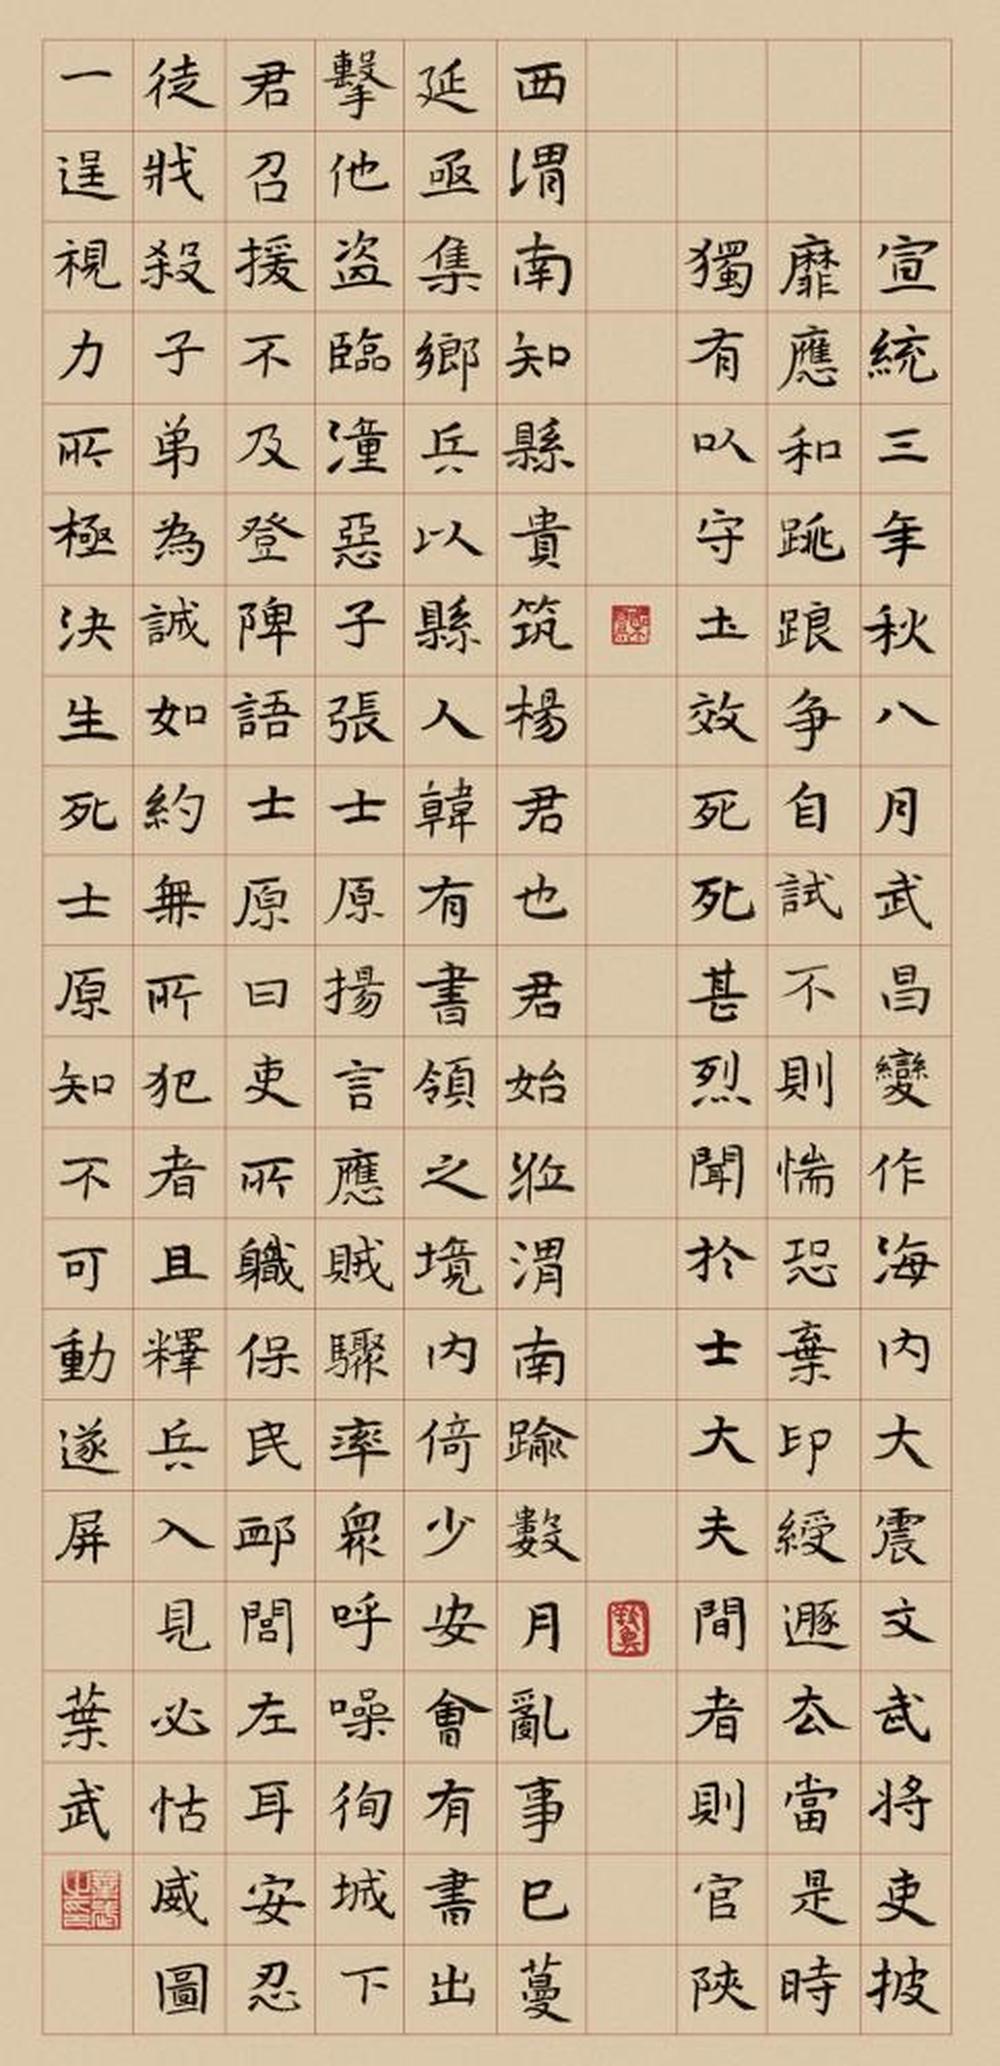 宣統三年秋八月武昌變作海內大震文武將吏披
靡應和跳踉爭自試不則惴恐棄印綬遯去當是時
獨有以守土效死死甚烈聞於士大夫間者則官陝
西渭南知縣貴筑楊君也君始涖渭南踰數月亂事已蔓
延亟集鄉兵以縣人韓有書領之境內倚少安會有書出
擊他盜臨潼惡子張士原揚言應賊驟率眾呼噪徇城下
君召援不及登陴語士原曰吏所職保民卹閭左耳安忍
徒戕殺子弟為誠如約無所犯者且釋兵入見必怙威圖
一逞視力所極決生死士原知不可動遂屏 葉武